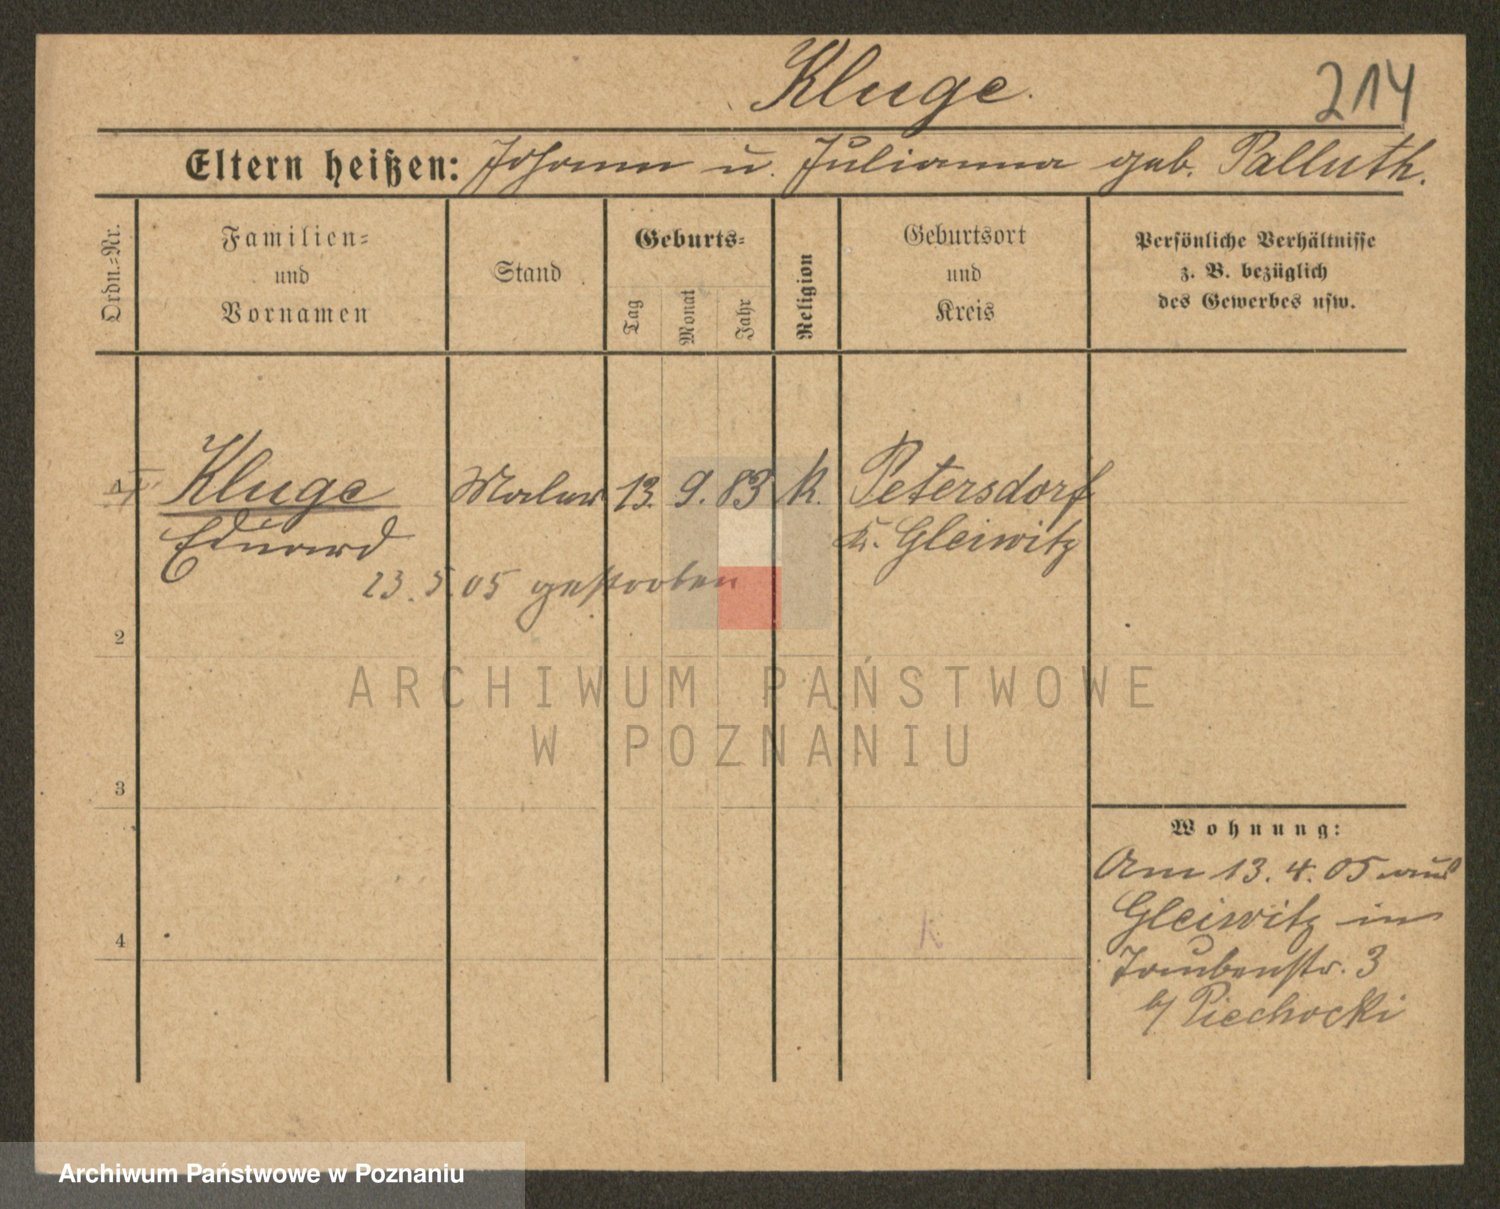 Kluge.
214
Eltern heißen: Johann u. Julianna geb. Palluth.
Ordn.-Nr.
Familien-
und
Vornamen
Stand
Geburts-
Tag
Monat
Jahr
Religion
Geburtsort
und
Kreis
Persönliche Verhältnisse
z. B. bezüglich
des Gewerbes usw.
Kluge Maler 13. 9. 83 k. Petersdorf
Eduard Kr. Gleiwitz
23. 5. 05 gestorben
2
ARCHIWUM PAŃSTWOWE
W POZNANIU
3
Wohnung:
Am 13. 4. 05 aus
Gleiwitz in
Taubenstr. 3
b/ Piechocki
4
k
Archiwum Państwowe w Poznaniu